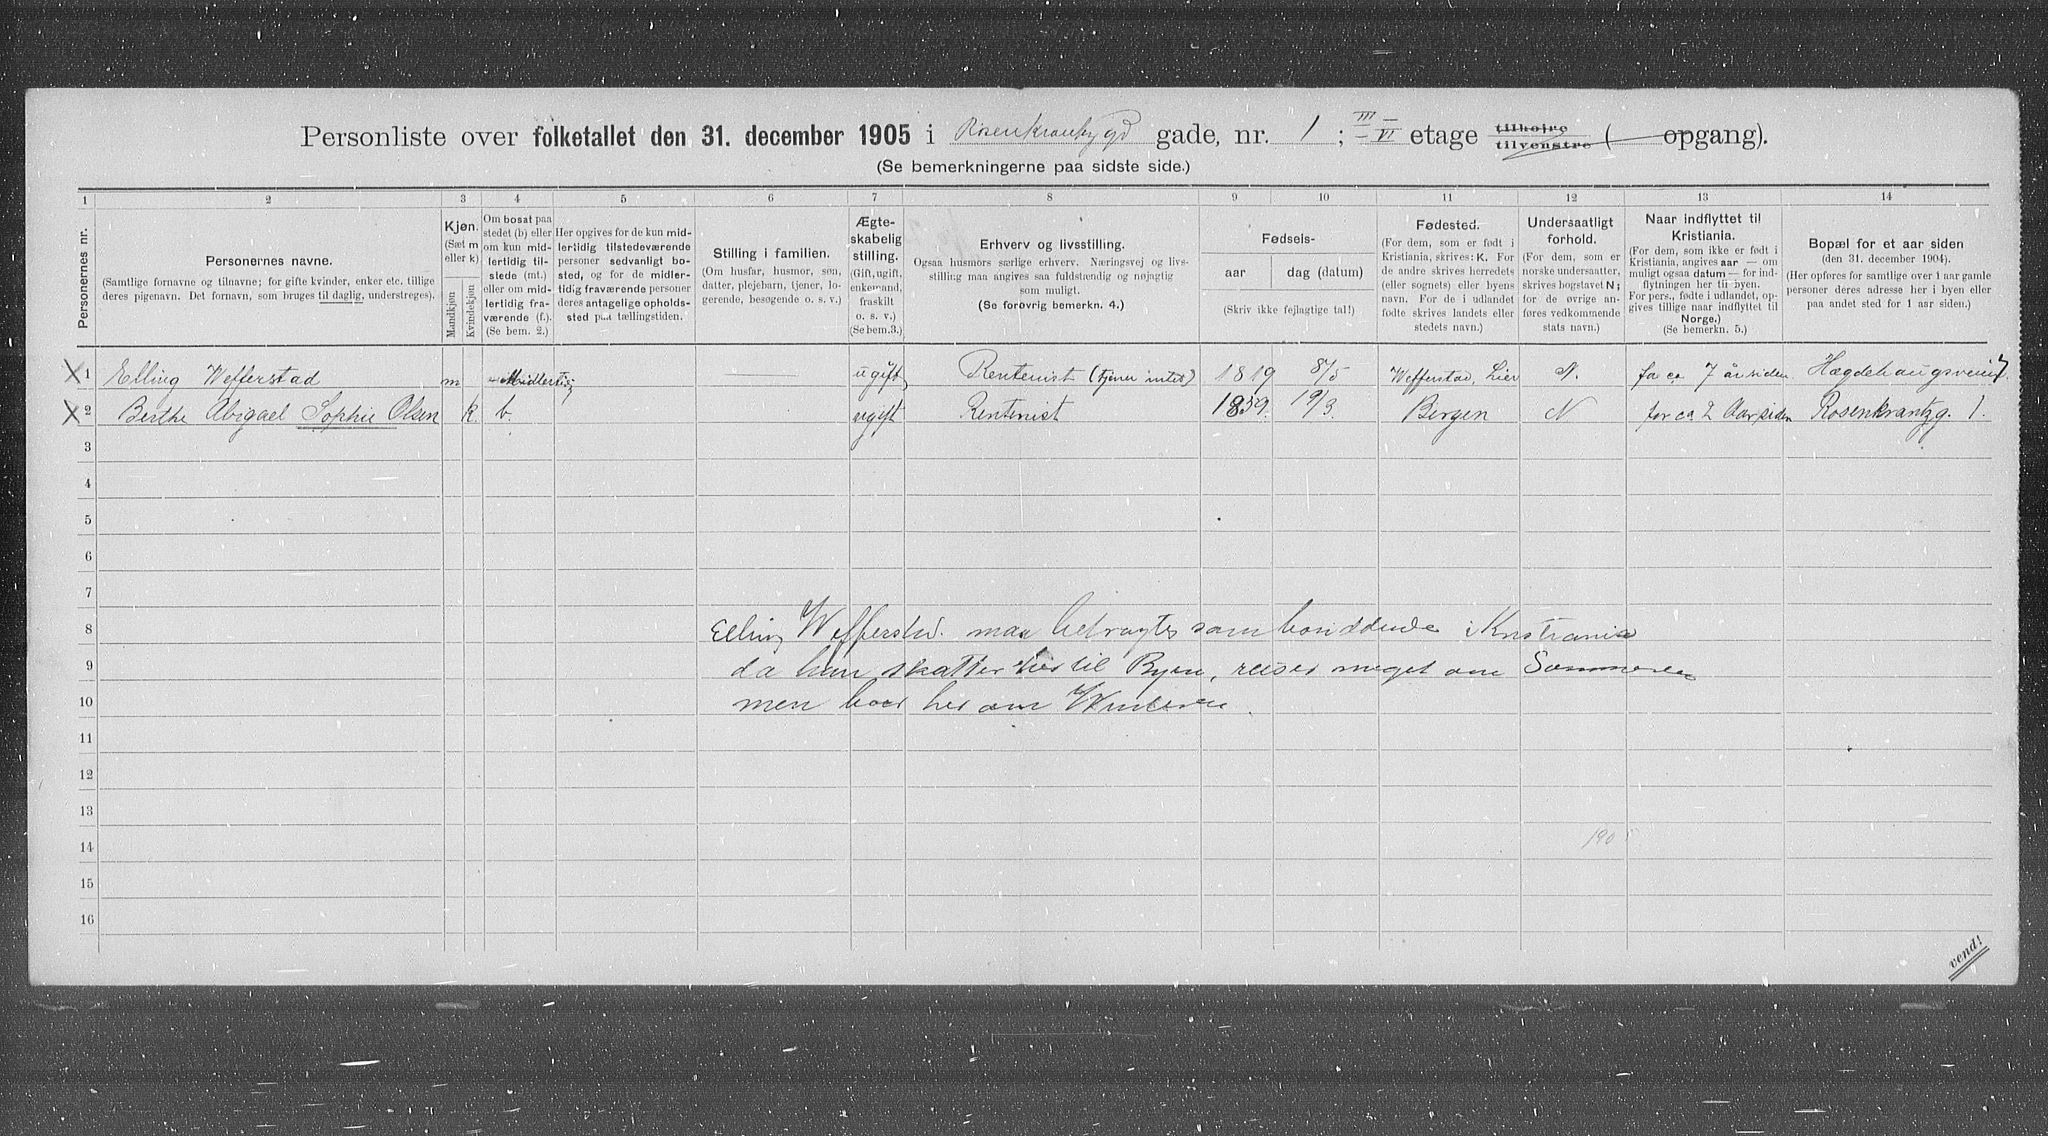 Personliste over folketallet den 31. december 1905 i Rosenkrantz gade, nr. 1; III – VI etage tilhøire tilvenstre ( opgang).
(Se bemerkningerne paa sidste side.)
1 2 3 4 5 6 7 8 9 10 11 12 13 14
Personernes nr.
Personernes navne.
(Samtlige fornavne og tilnavne; for gifte kvinder, enker etc. tillige deres pigenavn. Det fornavn, som bruges til daglig, understreges).
Kjøn.
(Sæt m eller k)
Mandkjøn
Kvindekjøn
Om bosat paa stedet (b) eller om kun midlertidig tilstede (mt.) eller om midlertidig fraværende (f.). (Se bem. 2.)
Her opgives for de kun midlertidig tilstedeværende personer sedvanligt bosted, og for de midlertidig fraværende personer deres antagelige opholdssted paa tællingstiden.
Stilling i familien.
(Om husfar, husmor, søn, datter, plejebarn, tjener, logerende, besøgende o. s. v.)
Ægteskabelig stilling.
(Gift, ugift, enkemand, fraskilt o. s. v.)
(Se bem.3.)
Erhverv og livsstilling.
Ogsaa husmors særlige erhverv. Næringsvej og livsstilling maa angives saa fuldstændig og nøjagtig som muligt.
(Se forøvrig bemerkn. 4.)
Fødsels-
aar
dag (datum)
(Skriv ikke fejlagtige tal!)
Fødested.
(For dem, som er født i Kristiania, skrives: K. For de andre skrives herredets (eller sognets) eller byens navn. For de i udlandet fødte skrives landets eller stedets navn.)
Undersaatligt forhold.
(For dem, som er norske undersaatter, skrives bogstavet N; for de øvrige anføres vedkommende stats navn.)
Naar indflyttet til Kristiania.
(For dem, som ikke er født i Kristiania, angives aar — om muligt ogsaa datum — for indflytningen her til byen. For pers., fødte i udlandet, opgives tillige naar indflyttet til Norge.)
(Se bemerkn. 5.)
Bopæl for et aar siden
(den 31. december 1904.)
(Her opføres for samtlige over 1 aar gamle personer deres adresse her i byen eller paa andet sted for 1 aar siden.)
X 1 Elling Wefferstad m Midlertig — ugift Rentenist (tjener intet) 1819 8/5 Wefferstad, Lier N. for ca 7 år siden Hægdehaugsveien 7.
X 2 Berthe Abigael Sophie Olsen k. b. ugift Rentenist 1859. 19/3. Bergen N for ca 2 Aar siden Rosenkrantzg. 1.
3
4
5
6
7
8 Elling Wefferstad. maa betragtes som boniddende i Kristiania
9 da han skatter her til Byen, reiser meget om Sommeren
10 men boer her om Vinteren.
11
12
13
14 190
15
16
vend!